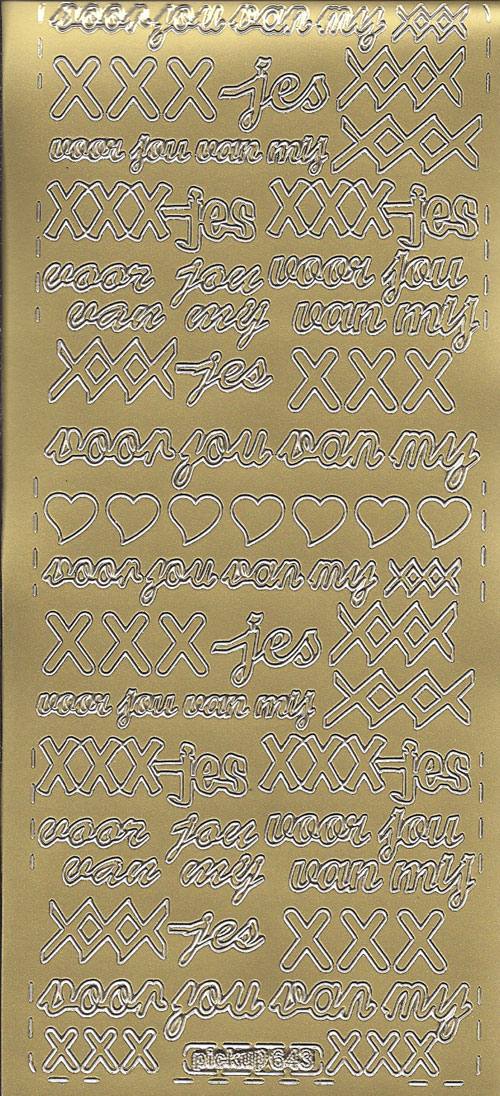 voor jou van my xxx
XXX-jes XXX
voor jou van mij XXX
XXX-jes XXX-jes
voor jou voor jou
van my van mij
XXX-jes XXX
voor jou van my
voor jou van my xxx
XXX-jes XXX
voor jou van mij XXX
XXX-jes XXX-jes
voor jou voor jou
van my van mij
XXX-jes XXX
voor jou van my
XXX pickup 643 XXX